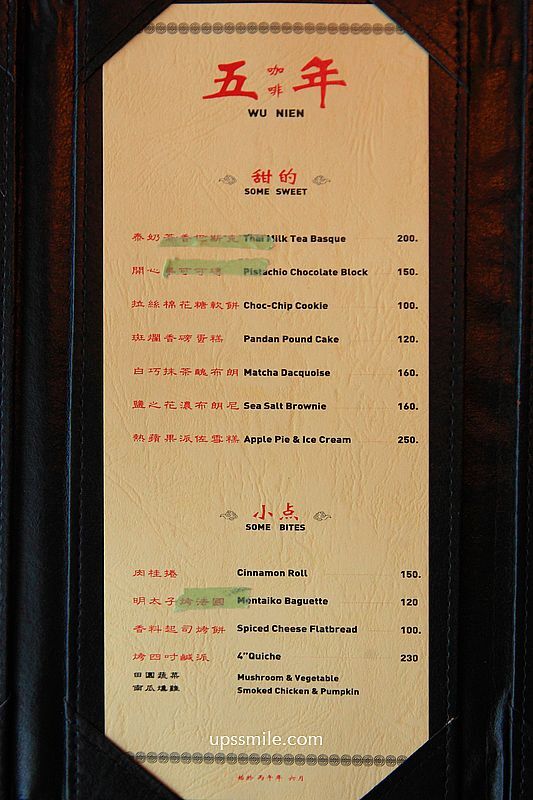 五 咖啡 年
WU NIEN
甜的
SOME SWEET
泰奶茶香巴斯克 Thai Milk Tea Basque 200.
開心果可可磚 Pistachio Chocolate Block 150.
拉絲棉花糖軟餅 Choc-Chip Cookie 100.
斑斕香磅蛋糕 Pandan Pound Cake 120.
白巧抹茶醜布朗 Matcha Dacquoise 160.
鹽之花濃布朗尼 Sea Salt Brownie 160.
熱蘋果派佐雪糕 Apple Pie & Ice Cream 250.
小点
SOME BITES
肉桂捲 Cinnamon Roll 150.
明太子烤法國 Mentaiko Baguette 120
香料起司烤餅 Spiced Cheese Flatbread 100.
烤四吋鹹派 4"Quiche 230
田園蔬菜 Mushroom & Vegetable
南瓜燻雞 Smoked Chicken & Pumpkin
upssmile.com
始於丙午年 六月